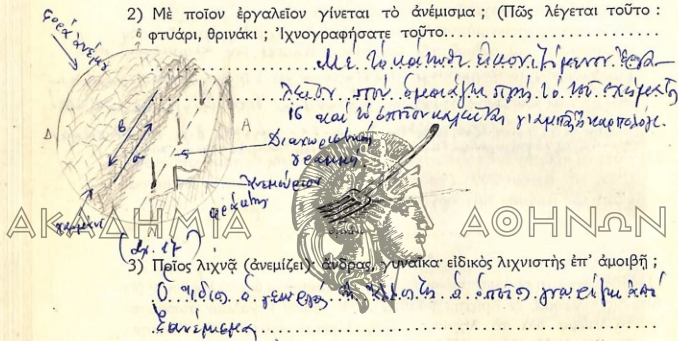 2) Μὲ ποῖον ἐργαλεῖον γίνεται τὸ ἀνέμισμα ; (Πῶς λέγεται τοῦτο :
φτυάρι, θρινάκι ; Ἰχνογραφήσατε τοῦτο
Μὲ τὸ κάτωθι εἰκονιζόμενον ἐργα-
λεῖον ποὺ ὁμοιάζει πρὸς τὸ τοῦ σχήματος
16 καὶ τὸ ὁποῖον καλεῖται
φορὰ ἀνέμου
Δ
Α
β
α
Διαχωριστικὴ
γραμμὴ
Ἀνεμώριον
(Σχ. 17)
ΑΚΑΔΗΜΙΑ ΑΘΗΝΩΝ
3) Ποῖος λιχνᾷ (ἀνεμίζει)· ἄνδρας, γυναῖκα· εἰδικὸς λιχνιστὴς ἐπ' ἀμοιβῇ ;
Ὁ ἴδιος ὁ γεωργὸς ἢ ἄλλος τις ὁ ὁποῖος γνωρίζει καλὰ
ξανέμισμα